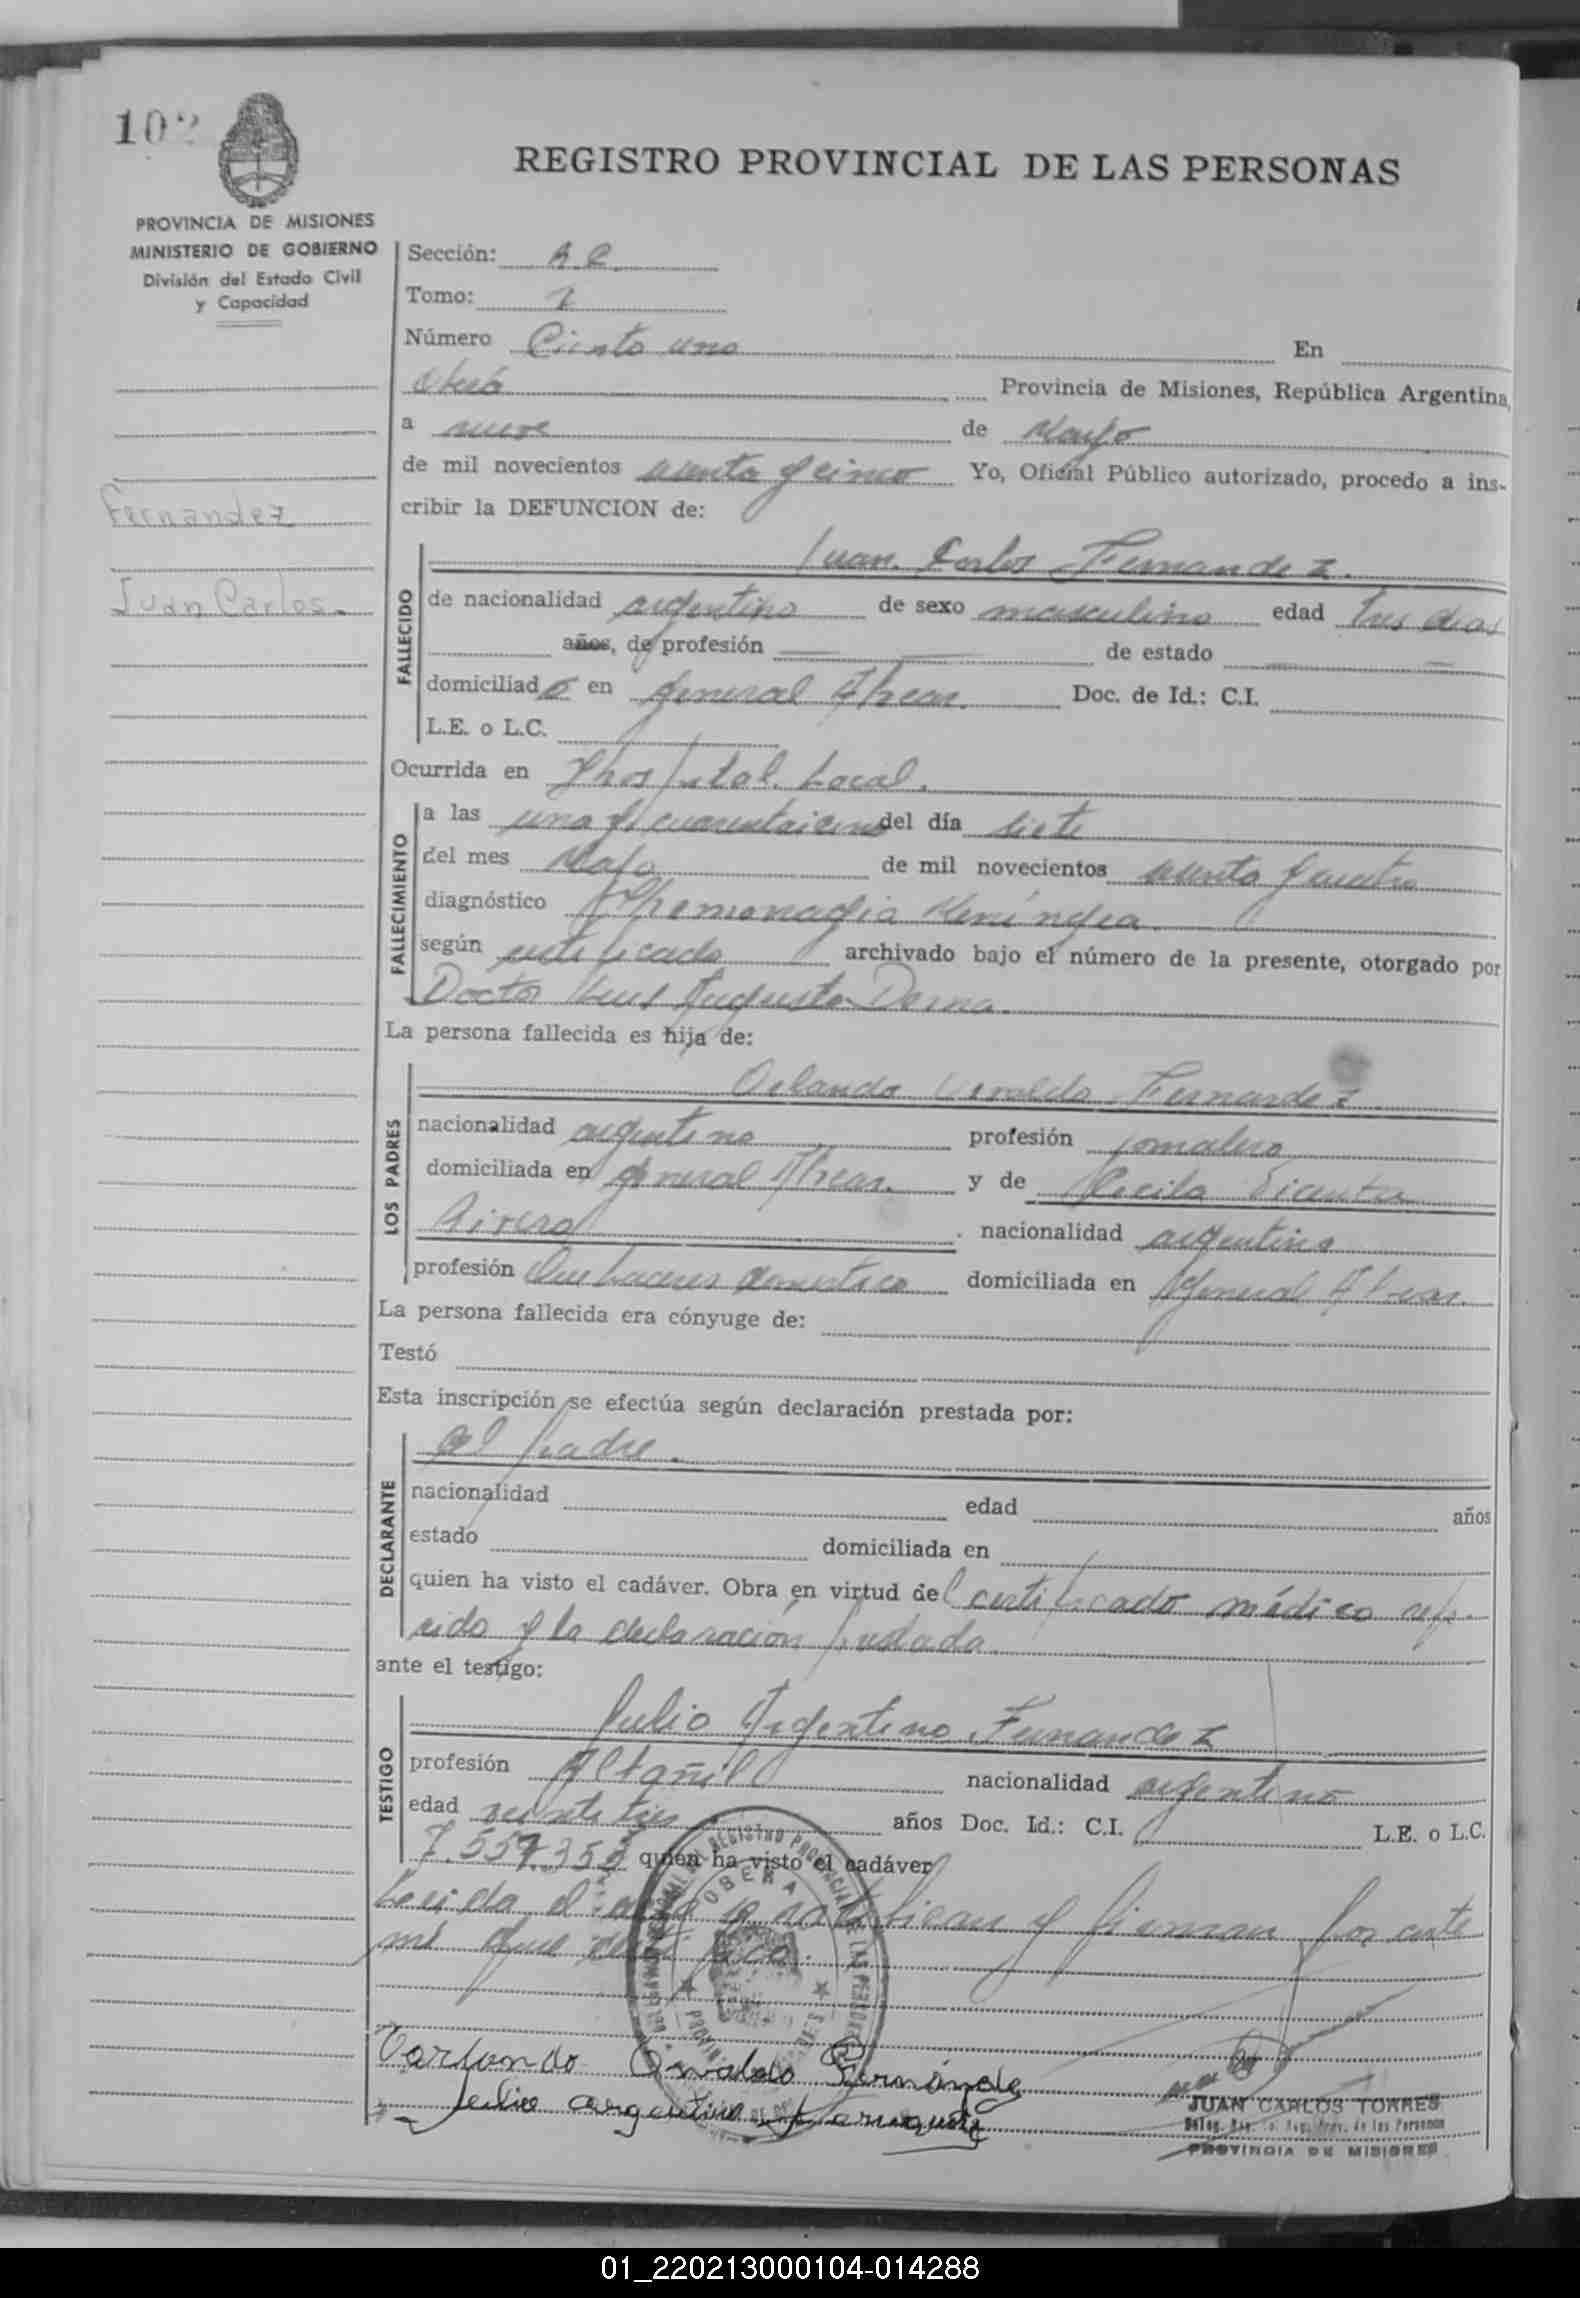 102
REGISTRO PROVINCIAL DE LAS PERSONAS
PROVINCIA DE MISIONES
MINISTERIO DE GOBIERNO
División del Estado Civil
y Capacidad
Fernandez
Juan Carlos.
Sección:
Tomo:
Número Ciento uno En
Oberá Provincia de Misiones, República Argentina,
a nueve de Mayo
de mil novecientos y cinco Yo, Oficial Público autorizado, procedo a ins-
cribir la DEFUNCION de:
Juan Carlos Fernandez.
FALLECIDO
de nacionalidad argentino de sexo masculino edad tres dias
años, de profesión — — de estado — —
domiciliado en general Alvear. Doc. de Id.: C.I.
L.E. o L.C.
Ocurrida en Hospital Local.
FALLECIMIENTO
a las una y del día siete
del mes Mayo de mil novecientos
diagnóstico Meníngea.
según certificado archivado bajo el número de la presente, otorgado por
Doctor Luis Augusto
La persona fallecida es hija de:
LOS PADRES
Orlando Fernandez
nacionalidad argentino profesión jornalero
domiciliada en general Alvear. y de
nacionalidad argentina
profesión Quehaceres domestico domiciliada en General Alvear.
La persona fallecida era cónyuge de:
Testó
Esta inscripción se efectúa según declaración prestada por:
DECLARANTE
el padre.
nacionalidad edad años
estado domiciliada en
quien ha visto el cadáver. Obra en virtud del certificado médico refe-
rido y la declaración prestada.
ante el testigo:
TESTIGO
Julio Argentino Fernandez
profesión Albañil nacionalidad argentino
edad años Doc. Id.: C.I. L.E. o L.C.
quien ha visto el cadáver
Leída el acta la ratifican y firman por ante
mi que certifico.
OBERA
Osvaldo Fernande
Julio argentino
JUAN CARLOS TORRES
PROVINCIA DE MISIONES
01_220213000104-014288